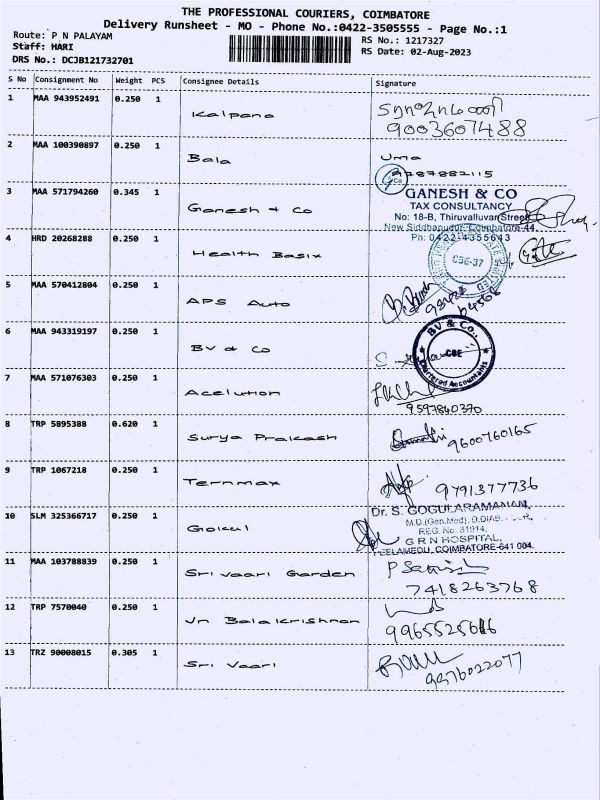 THE PROFESSIONAL COURIERS, COIMBATORE
Delivery Runsheet - MO - Phone No.:0422-3505555 - Page No.:1
Route: P N PALAYAM
RS No.: 1217327
Staff: HARI
RS Date: 02-Aug-2023
DRS No.: DCJB121732701
S No Consignment No Weight PCS Consignee Details Signature
1 MAA 943952491 0.250 1 Kalpana
9003607488
2 MAA 100390897 0.250 1 Bala Uma
9787882115
3 MAA 571794260 0.345 1 Ganesh & Co
GANESH & CO
TAX CONSULTANCY
No: 18-B, Thiruvalluvar Street
New Siddhapudur, Coimbatore-44
Ph: 0422-4355643
4 HRD 20268288 0.250 1 Health Basix
CBE-37
5 MAA 570412804 0.250 1 APS Auto
6 MAA 943319197 0.250 1 BV & Co
BV & Co.,
CBE
Chartered Accountants
7 MAA 571076303 0.250 1 Acelution
9597840370
8 TRP 5895388 0.620 1 Surya Prakash
9600760165
9 TRP 1067218 0.250 1 Ternmax
9791377736
10 SLM 325366717 0.250 1 Gokul
Dr. S. GOGULARAMANAN,
M.D.(Gen.Med), D.DIAB.
REG. No. 81914,
G R N HOSPITAL,
PEELAMEDU, COIMBATORE-641 004.
11 MAA 103788839 0.250 1 Sri vaari Garden P Satish
7418263768
12 TRP 7570040 0.250 1 Vn Balakrishnan
13 TRZ 90008015 0.305 1 Sri Vaari
9976022077